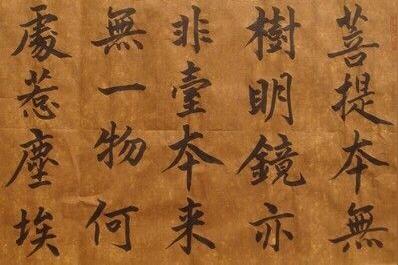 菩提本無
樹明鏡亦
非臺本来
無一物何
處惹塵埃